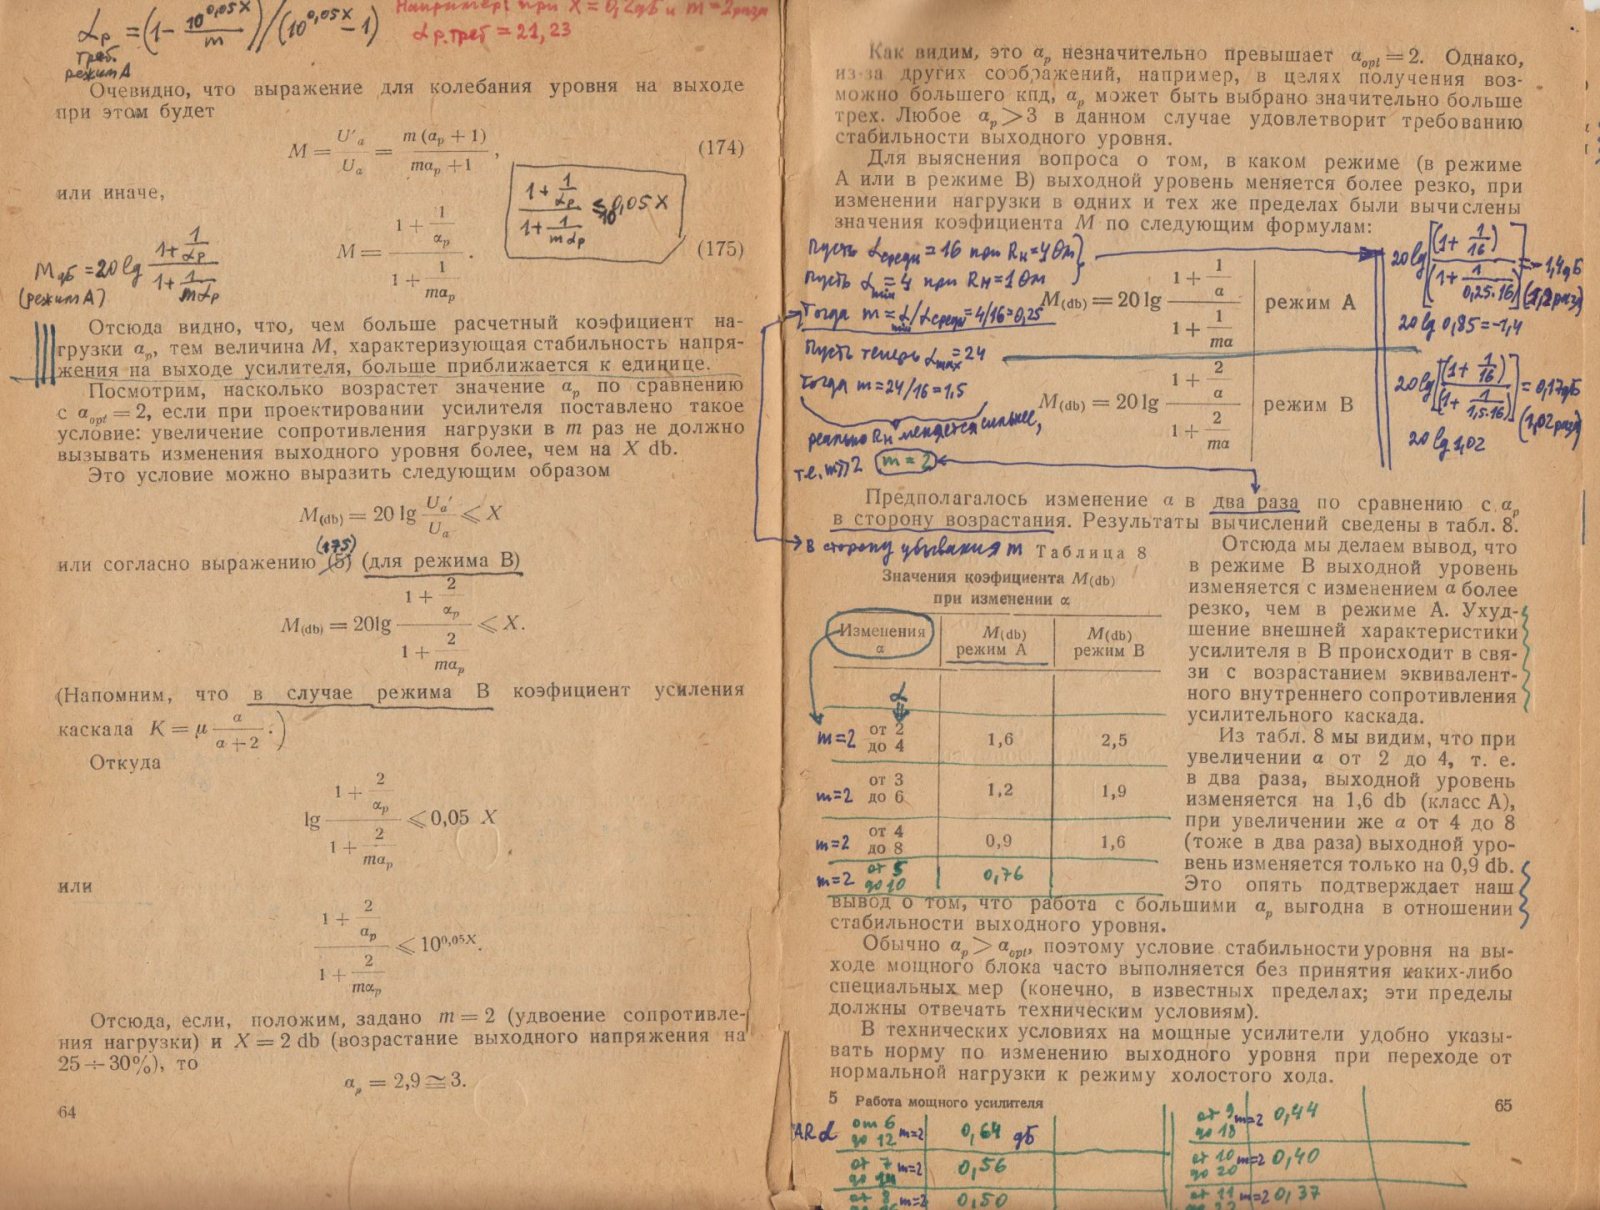 αр = (1 − 10^0,05X / m) / (10^0,05X − 1)
треб.
режим А
Например: при X = 0,2дБ и m = 2раза
αр.треб = 21,23
Очевидно, что выражение для колебания уровня на выходе
при этом будет
M = U'a / Ua = m (αp + 1) / mαp + 1 , (174)
или иначе,
M = (1 + 1/αp) / (1 + 1/mαp) . (175)
(1 + 1/αp) / (1 + 1/mαp) ≤ 10^0,05X
MдБ = 20 lg (1 + 1/αp) / (1 + 1/mαp)
(режим А)
Отсюда видно, что, чем больше расчетный коэфициент на-
грузки αp, тем величина M, характеризующая стабильность напря-
жения на выходе усилителя, больше приближается к единице.
Посмотрим, насколько возрастет значение αp по сравнению
с αopt = 2, если при проектировании усилителя поставлено такое
условие: увеличение сопротивления нагрузки в m раз не должно
вызывать изменения выходного уровня более, чем на X db.
Это условие можно выразить следующим образом
M(db) = 20 lg Ua' / Ua ⩽ X
(175)
или согласно выражению (5) (для режима В)
M(db) = 20lg (1 + 2/αp) / (1 + 2/mαp) ⩽ X.
(Напомним, что в случае режима В коэфициент усиления
каскада K = μ α / α + 2 .)
Откуда
lg (1 + 2/αp) / (1 + 2/mαp) ⩽ 0,05 X
или
(1 + 2/αp) / (1 + 2/mαp) ⩽ 10^0,05X.
Отсюда, если, положим, задано m = 2 (удвоение сопротивле-
ния нагрузки) и X = 2 db (возрастание выходного напряжения на
25 ÷ 30%), то
αp = 2,9 ≅ 3.
64
Как видим, это αp незначительно превышает αopt = 2. Однако,
из-за других соображений, например, в целях получения воз-
можно большего кпд, αp может быть выбрано значительно больше
трех. Любое αp > 3 в данном случае удовлетворит требованию
стабильности выходного уровня.
Для выяснения вопроса о том, в каком режиме (в режиме
А или в режиме В) выходной уровень меняется более резко, при
изменении нагрузки в одних и тех же пределах были вычислены
значения коэфициента M по следующим формулам:
Пусть αсредн = 16 при Rн = 4 Ом
Пусть αmin = 4 при Rн = 1 Ом
Тогда m = αmin/αсредн = 4/16 = 0,25
Пусть теперь αmax = 24
Тогда m = 24/16 = 1,5
реально Rн меняется сильнее,
т.е. m⩾2 m = 2
M(db) = 20 lg (1 + 1/α) / (1 + 1/mα) режим А
M(db) = 20 lg (1 + 2/α) / (1 + 2/mα) режим В
20 lg [(1 + 1/16) / (1 + 1/0,25·16)] = −1,4дБ
(1,2раз)
20 lg 0,85 = −1,4
20 lg [(1 + 1/16) / (1 + 1/1,5·16)] = 0,17дБ
(1,02раз)
20 lg 1,02
Предполагалось изменение α в два раза по сравнению с αp
в сторону возрастания. Результаты вычислений сведены в табл. 8.
в сторону убывания m
Таблица 8
Значения коэфициента M(db)
при изменении α
Изменения α M(db) режим А M(db) режим В
α
m=2 от 2 до 4 1,6 2,5
m=2 от 3 до 6 1,2 1,9
m=2 от 4 до 8 0,9 1,6
m=2 от 5 до 10 0,76
Отсюда мы делаем вывод, что
в режиме В выходной уровень
изменяется с изменением α более
резко, чем в режиме А. Ухуд-
шение внешней характеристики
усилителя в В происходит в свя-
зи с возрастанием эквивалент-
ного внутреннего сопротивления
усилительного каскада.
Из табл. 8 мы видим, что при
увеличении α от 2 до 4, т. е.
в два раза, выходной уровень
изменяется на 1,6 db (класс А),
при увеличении же α от 4 до 8
(тоже в два раза) выходной уро-
вень изменяется только на 0,9 db.
Это опять подтверждает наш
вывод о том, что работа с большими αp выгодна в отношении
стабильности выходного уровня.
Обычно αp > αopt, поэтому условие стабильности уровня на вы-
ходе мощного блока часто выполняется без принятия каких-либо
специальных мер (конечно, в известных пределах; эти пределы
должны отвечать техническим условиям).
В технических условиях на мощные усилители удобно указы-
вать норму по изменению выходного уровня при переходе от
нормальной нагрузки к режиму холостого хода.
5 Работа мощного усилителя
65
α от 6 до 12 m=2 0,64 дБ
от 7 до 14 m=2 0,56
от 8 m=2 0,50
от 9 до 18 m=2 0,44
от 10 до 20 m=2 0,40
от 11 m=2 0,37